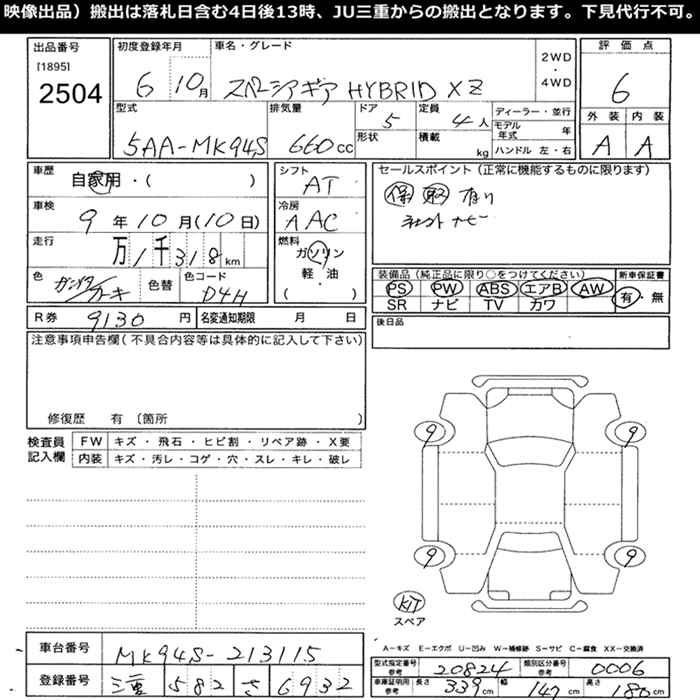 映像出品）搬出は落札日含む4日後13時、JU三重からの搬出となります。下見代行不可。
出品番号
[1895]
2504
初度登録年月
6 10月
車名・グレード
スペーシアギア HYBRID XZ
2WD
・
4WD
評価点
6
外装 内装
A A
型式
5AA-MK94S
排気量
660cc
ドア
5
形状
定員
4人
積載
kg
ディーラー・並行
モデル年式 年
ハンドル 左・右
車歴
自家用・( )
車検
9年10月(10日)
走行
万1千318km
色
色替
色コード
D4H
シフト
AT
冷房
AAC
燃料
ガソリン
軽・油
( )
セールスポイント（正常に機能するものに限ります）
保 取 有り
ナビー
装備品（純正品に限り○をつけてください）
PS PW ABS エアB AW
SR ナビ TV カワ
新車保証書
有・無
R券 9130円
名変通知期限 月 日
後日品
注意事項申告欄（不具合内容等は具体的に記入して下さい）
修復歴 有〔箇所 〕
検査員記入欄
FW キズ・飛石・ヒビ割・リペア跡・X要
内装 キズ・汚レ・コゲ・穴・スレ・キレ・破レ
9 9
9 9
KIT
スペア
A－キズ E－エクボ U－凹み W－補修跡 S－サビ C－腐食 XX－交換済
車台番号 MK94S-213115
登録番号 三重 582 さ 6932
型式指定番号 参考 20824 類別区分番号 参考 0006
車庫証明用 参考 長さ 339cm 幅 147cm 高さ 180cm